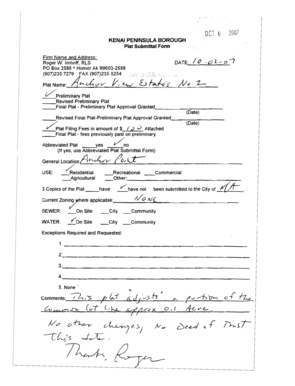 OCT 8 2007
KENAI PENINSULA BOROUGH
Plat Submittal Form
Firm Name and Address:
Roger W. Imhoff, RLS
PO Box 2588 * Homer Ak 99603-2588
(907)235 7279 FAX (907)235 5254
DATE 10-02-07
Plat Name: Anchor View Estates No 2
Preliminary Plat
Revised Preliminary Plat
Final Plat - Preliminary Plat Approval Granted
(Date)
Revised Final Plat-Preliminary Plat Approval Granted
(Date)
Plat Filing Fees in amount of $ Attached
Final Plat - fees previously paid on preliminary
Abbreviated Plat yes no
(If yes, use Abbreviated Plat Submittal Form)
General Location Anchor Point
USE: Residential Recreational Commercial
Agricultural Other
3 Copies of the Plat have have not been submitted to the City of N/A
Current Zoning where applicable: NONE
SEWER: On Site City Community
WATER: On Site City Community
Exceptions Required and Requested:
1.
2.
3.
4.
5. None
Comments: This plat "adjusts" a portion of the
common lot line approx 0.1 Acre.
No other changes, No Deed of Trust
This date.
Thanks, Roger